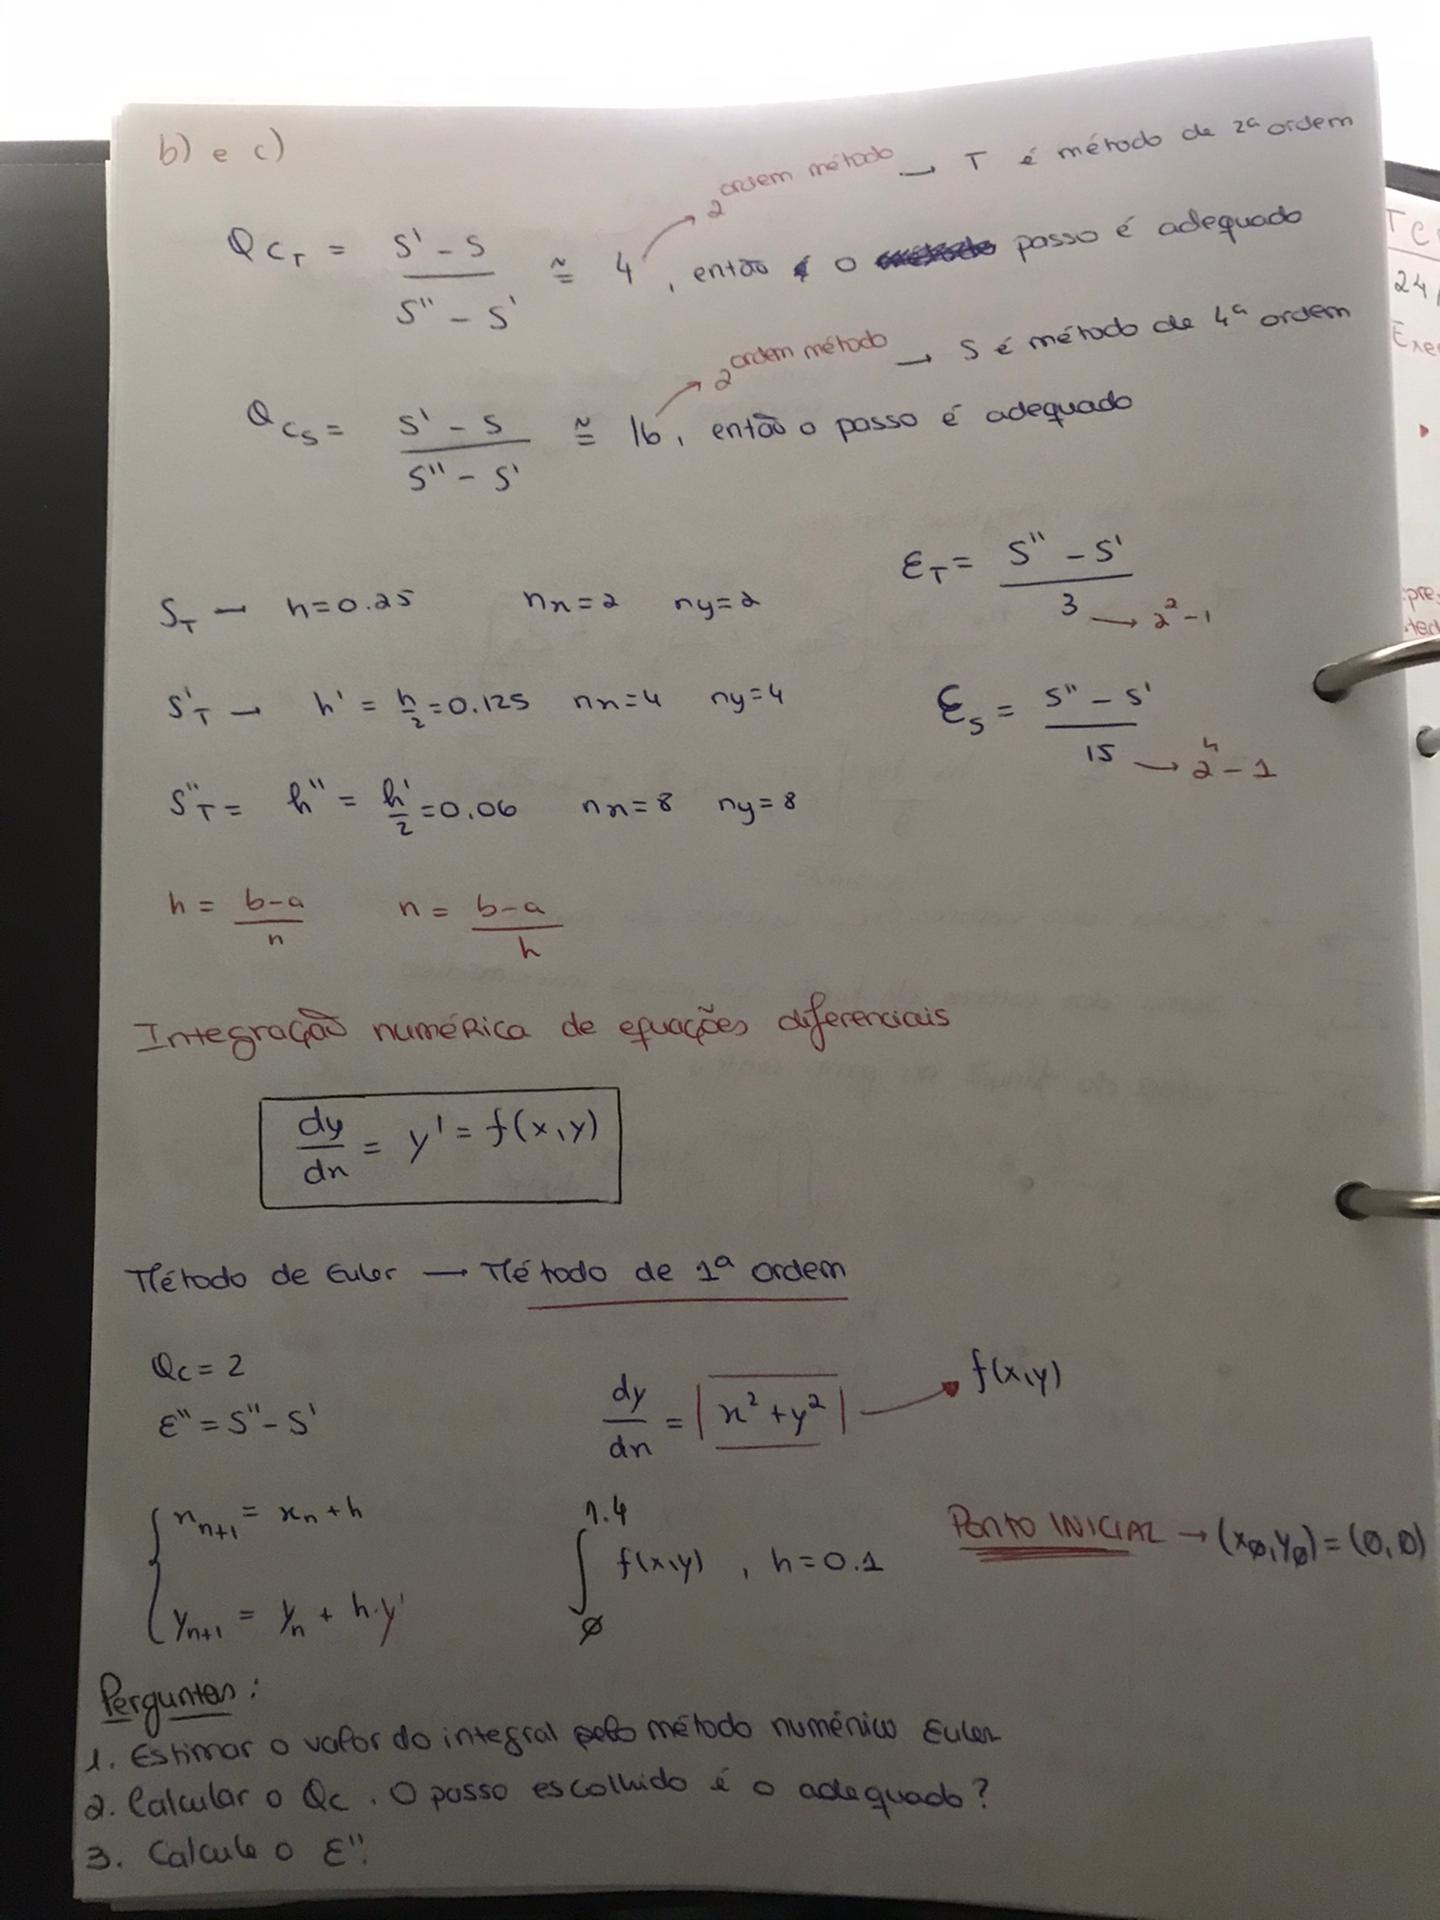 b) e c)
Q_{C_T} = \frac{S' - S}{S'' - S'} ≅ 4 → 2^{ordem método} → T é método de 2ª ordem
, então o passo é adequado
Q_{C_S} = \frac{S' - S}{S'' - S'} ≅ 16 → 2^{ordem método} → S é método de 4ª ordem
, então o passo é adequado
S_T → h=0.25 nx=2 ny=2
ε_T = \frac{S'' - S'}{3} → 2^2-1
S'_T → h' = \frac{h}{2} = 0.125 nx=4 ny=4
ε_S = \frac{S'' - S'}{15} → 2^4-1
S''_T = h'' = \frac{h'}{2} = 0.06 nx=8 ny=8
h = \frac{b-a}{n} n = \frac{b-a}{h}
Integração numérica de equações diferenciais
\frac{dy}{dx} = y' = f(x,y)
Método de Euler → Método de 1ª ordem
Qc = 2
ε'' = S'' - S'
\frac{dy}{dx} = x²+y² → f(x,y)
x_{n+1} = x_n + h
y_{n+1} = y_n + h.y'
∫_0^{1.4} f(x,y) , h=0.1
Ponto INICIAL → (x0,y0) = (0,0)
Perguntas:
1. Estimar o valor do integral pelo método numérico Euler
2. Calcular o Qc. O passo escolhido é o adequado?
3. Calcule o ε''.
24/